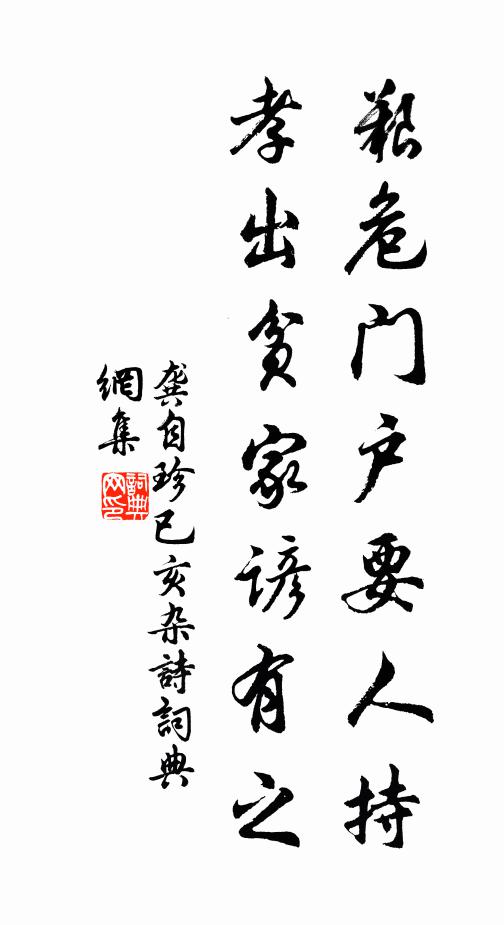 艱危门户要人持
孝出貧家諺有之
龚自珍己亥杂詩詞典
網集
詞典网印